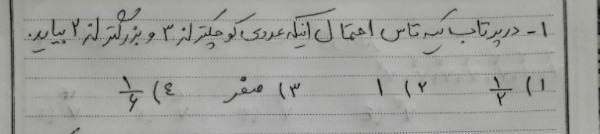 ۱- در پرتاب یک تاس احتمال اینکه عددی کوچکتر از ۳ و بزرگتر از ۲ بیاید.
۱) ۱/۲ ۲) ۱ ۳) صفر ٤) ۱/۶